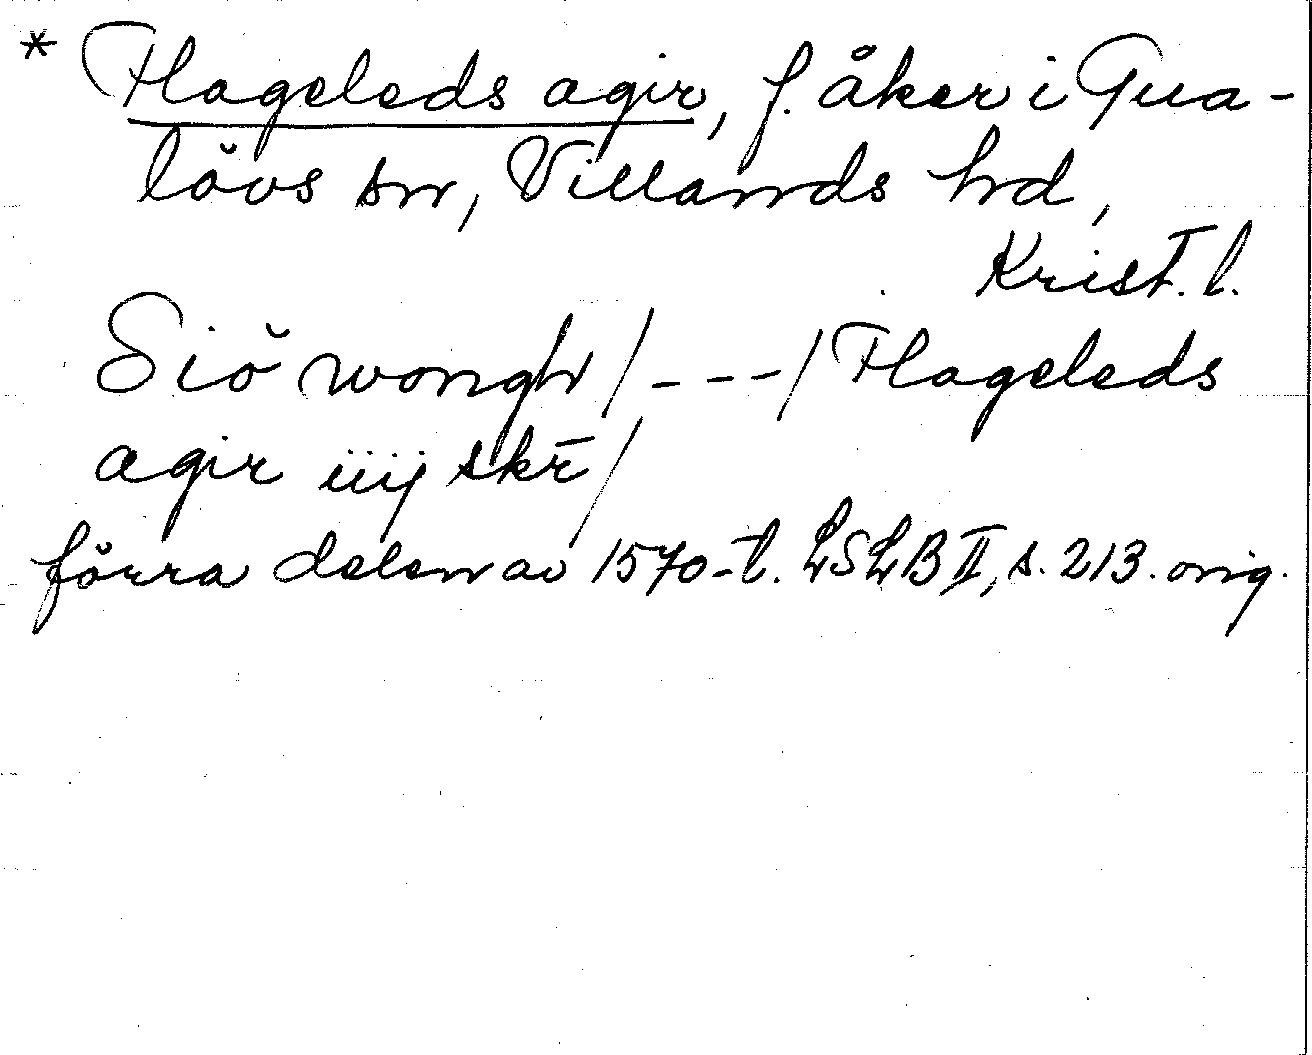 * Hageleds agir, f. åker i Gua-
lövs sn, Villands hd,
Krist. l.
Siö wongh / - - - / Hageleds
agir iiij skr̄ /
förra delen av 1570-t. LSLB II, s. 213. orig.